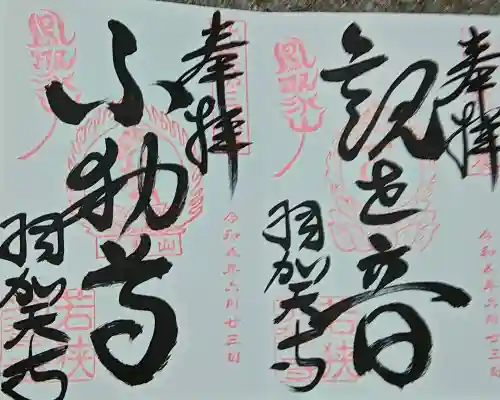 奉拝
観世音
羽賀寺
鳳聚山
令和五年六月廿三日
奉拝
不動尊
羽賀寺
鳳聚山
令和五年六月廿三日
若狭
若狭